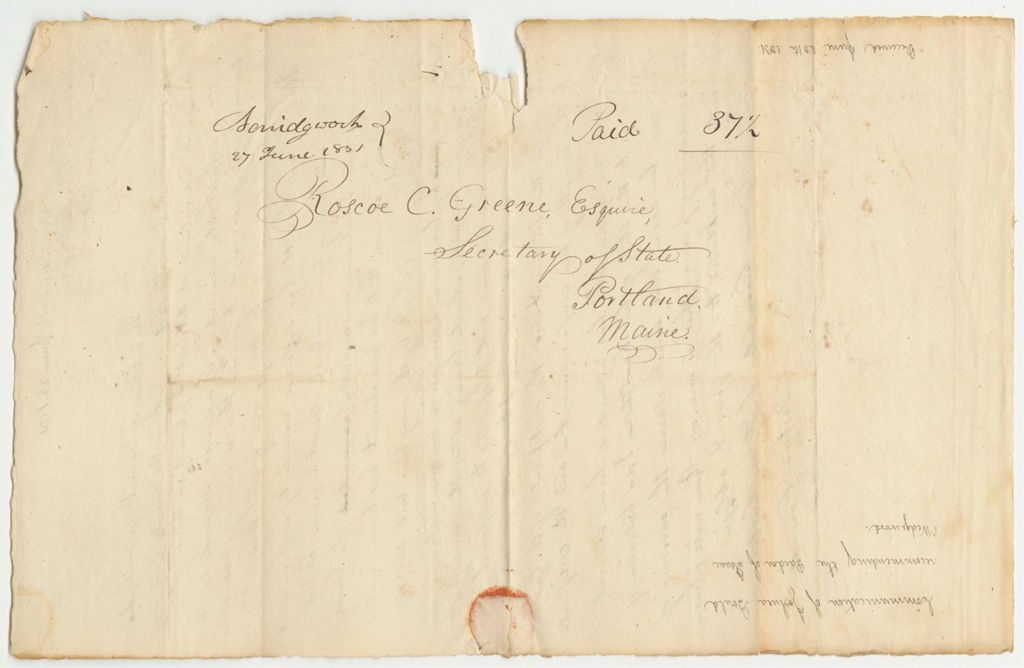 Norridgwock
27 June 1831
Paid 37½
Roscoe C. Greene, Esquire,
Secretary of State.
Portland.
Maine.
Communication of Joshua Gould
recommending the Pardon of Isaac
Wedgewood.
Received June 1831